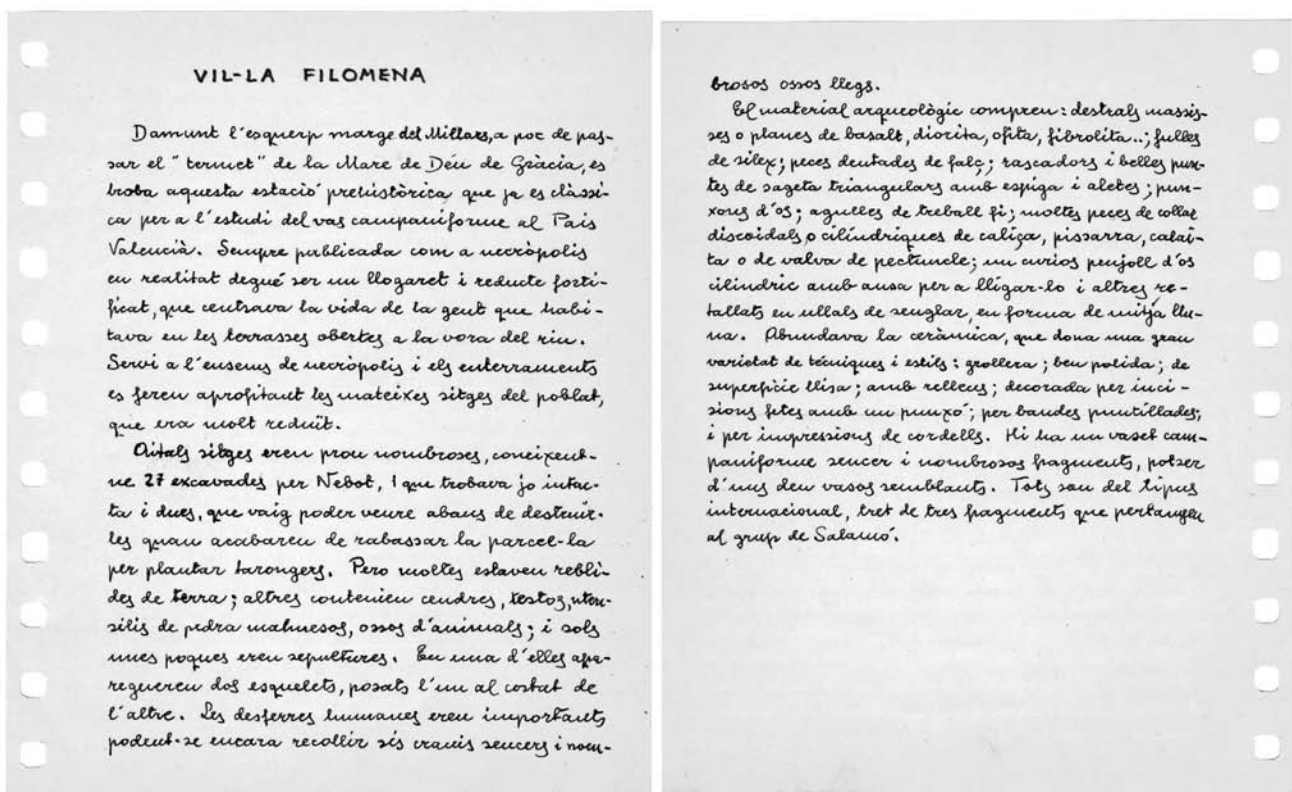 VIL-LA FILOMENA
Damunt l'esquerp marge del Millars, a poc de pas-
sar el "termet" de la Mare de Déu de Gràcia, es
troba aquesta estació prehistòrica que ja es clàssi-
ca per a l'estudi del vas campaniforme al Pais
Valencià. Sempre publicada com a necròpolis
en realitat degué ser un llogaret i reducte forti-
ficat, que centrava la vida de la gent que habi-
tava en les terrasses obertes a la vora del riu.
Servi a l'ensems de necròpolis i els enterraments
es feren aprofitant les mateixes sitges del poblat,
que era molt reduït.
Aitals sitges eren prou nombroses, coneixent-
ne 27 excavades per Nebot, 1 que trobava jo intac-
ta i dues, que vaig poder veure abans de destruir-
les quan acabaren de rabassar la parcel-la
per plantar tarongers. Pero moltes estaven rebli-
des de terra; altres contenien cendres, testos, uten-
silis de pedra malmesos, ossos d'animals; i sols
unes poques eren sepultures. En una d'elles apa-
regueren dos esquelets, posats l'un al costat de
l'altre. Les desferres humanes eren importants
podent-se encara recollir sis cranis sencers i nom-
brosos ossos llegs.
El material arqueològic compren: destrals massis-
ses o planes de basalt, diorita, ofita, fibrolita..; fulles
de silex; peces dentades de falç; rascadors i belles pun-
tes de sageta triangulars amb espiga i aletes; pun-
xons d'os; agulles de treball fi; moltes peces de collar
discoidals o cilíndriques de caliça, pissarra, calai-
ta o de valva de pectuncle; un curios penjoll d'os
cilindric amb ansa per a lligar-lo i altres re-
tallats en ullals de senglar, en forma de mitja llu-
na. Abundava la ceràmica, que dona una gran
varietat de tècniques i estils: grollera; ben polida; de
superficie llisa; amb relleus; decorada per inci-
sions fetes amb un punxó; per bandes puntillades;
i per impressions de cordells. Hi ha un vaset cam-
paniforme sencer i nombrosos fragments, potser
d'uns deu vasos semblants. Tots son del tipus
internacional, tret de tres fragments que pertanyen
al grup de Salamó.